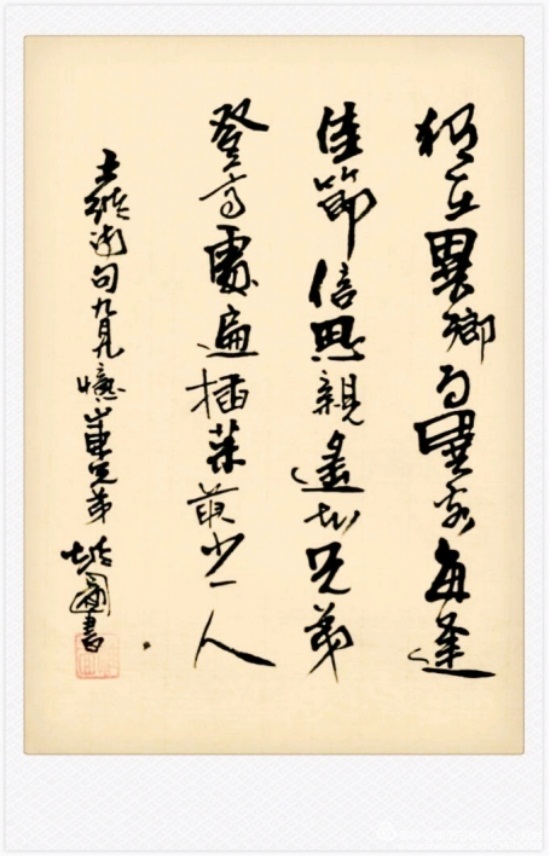 独在異鄉为異客每逢
佳節倍思親遙知兄弟
登高處遍插茱萸少一人
王維詩句九月九憶山東兄弟 書